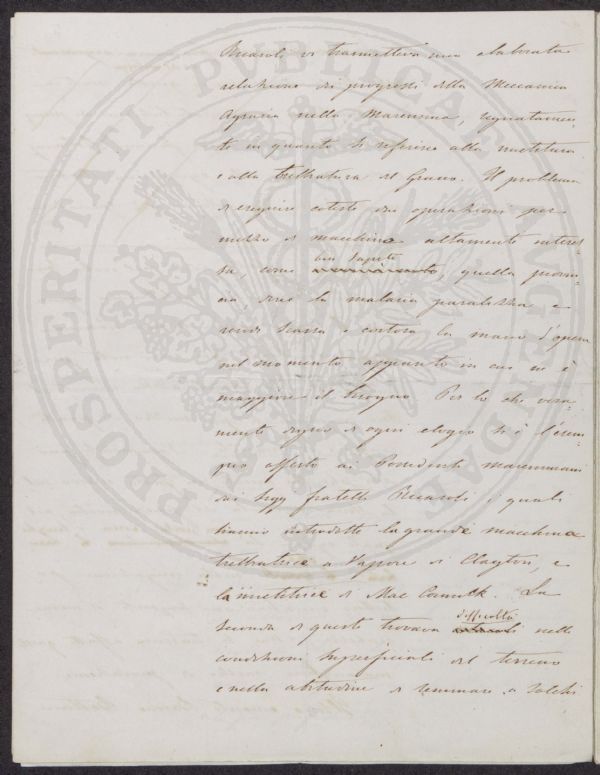 Ricasoli vi trasmetteva una elaborata
relazione dei progressi della Meccanica
Agraria nella Maremma, segnatamen-
te in quanto si referisce alla mietitura
e alla trebbiatura del Grano. Il problema
di eseguire coteste due operazioni per
mezzo di macchine altamente interes-
sa, come ben sapete, quella provin-
cia, dove la malaria paralizza e
rende scarsa e costosa la mano d'opera
nel momento appunto in cui ne è
maggiore il bisogno. Per lo che vera-
mente degno di ogni elogio si è l'esem-
pio offerto ai Possidenti maremmani
dai Sigg fratelli Ricasoli, i quali
hanno introdotto la grande macchina
trebbiatrice a Vapore di Clayton, e
la mietitrice di Mac Cormik. La
seconda di queste trovava difficoltà nelle
condizioni superficiali del terreno
e nella abitudine di seminare a solchi
PROSPERITATI PUBLICAE AUGENDAE